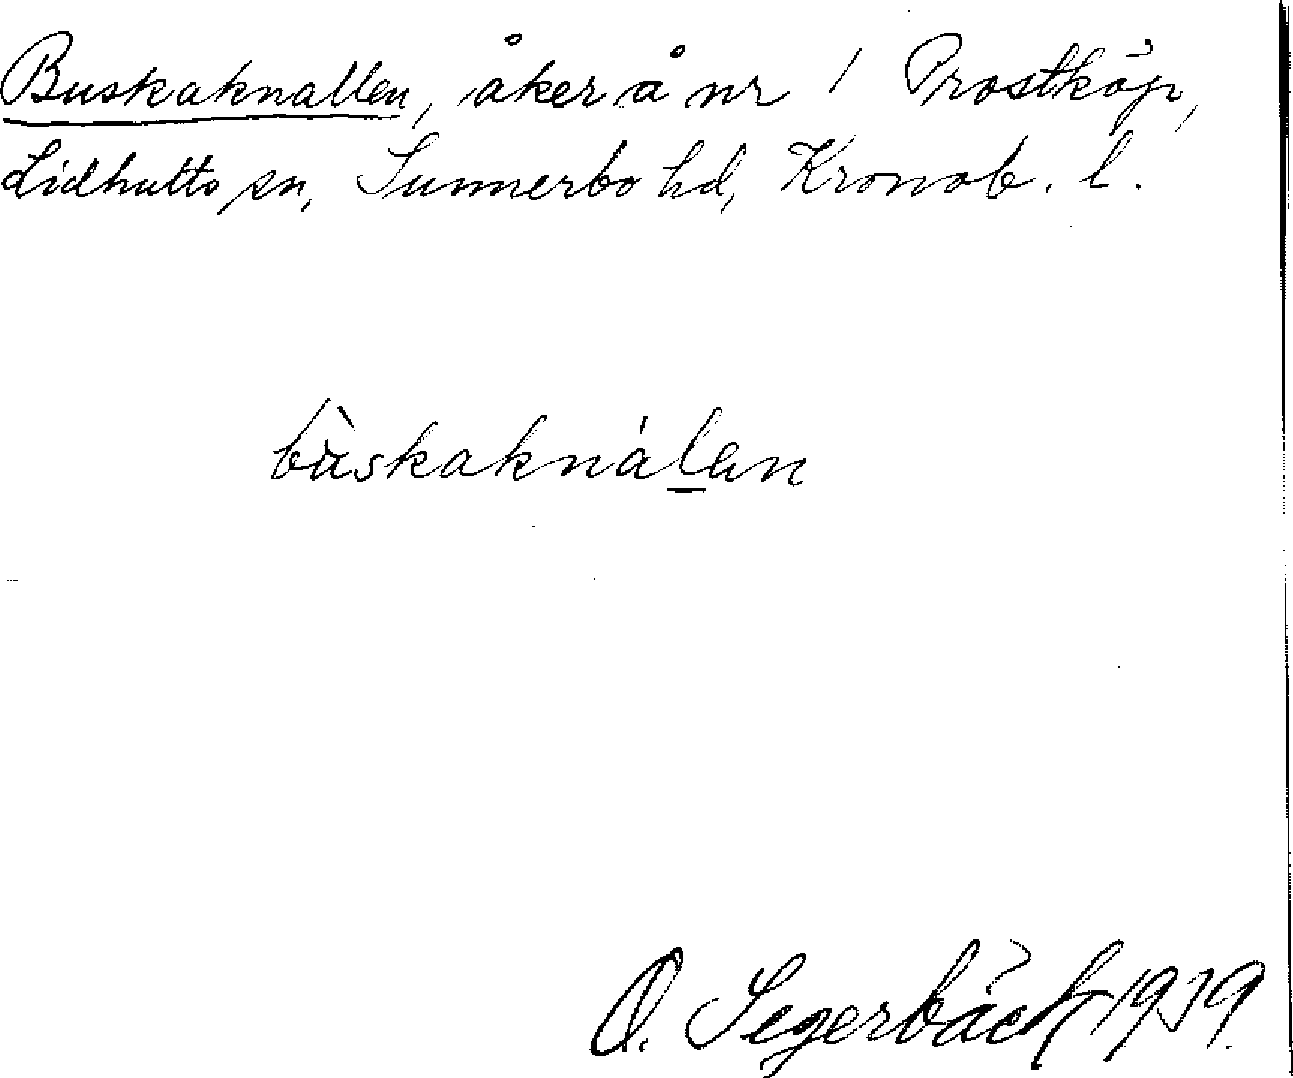 Buskaknallen, åker å nr 1 Prostköp,
Lidhults sn, Sunnerbo hd, Kronob. l.
bùskaknálen
O. Segerbäck 1939.